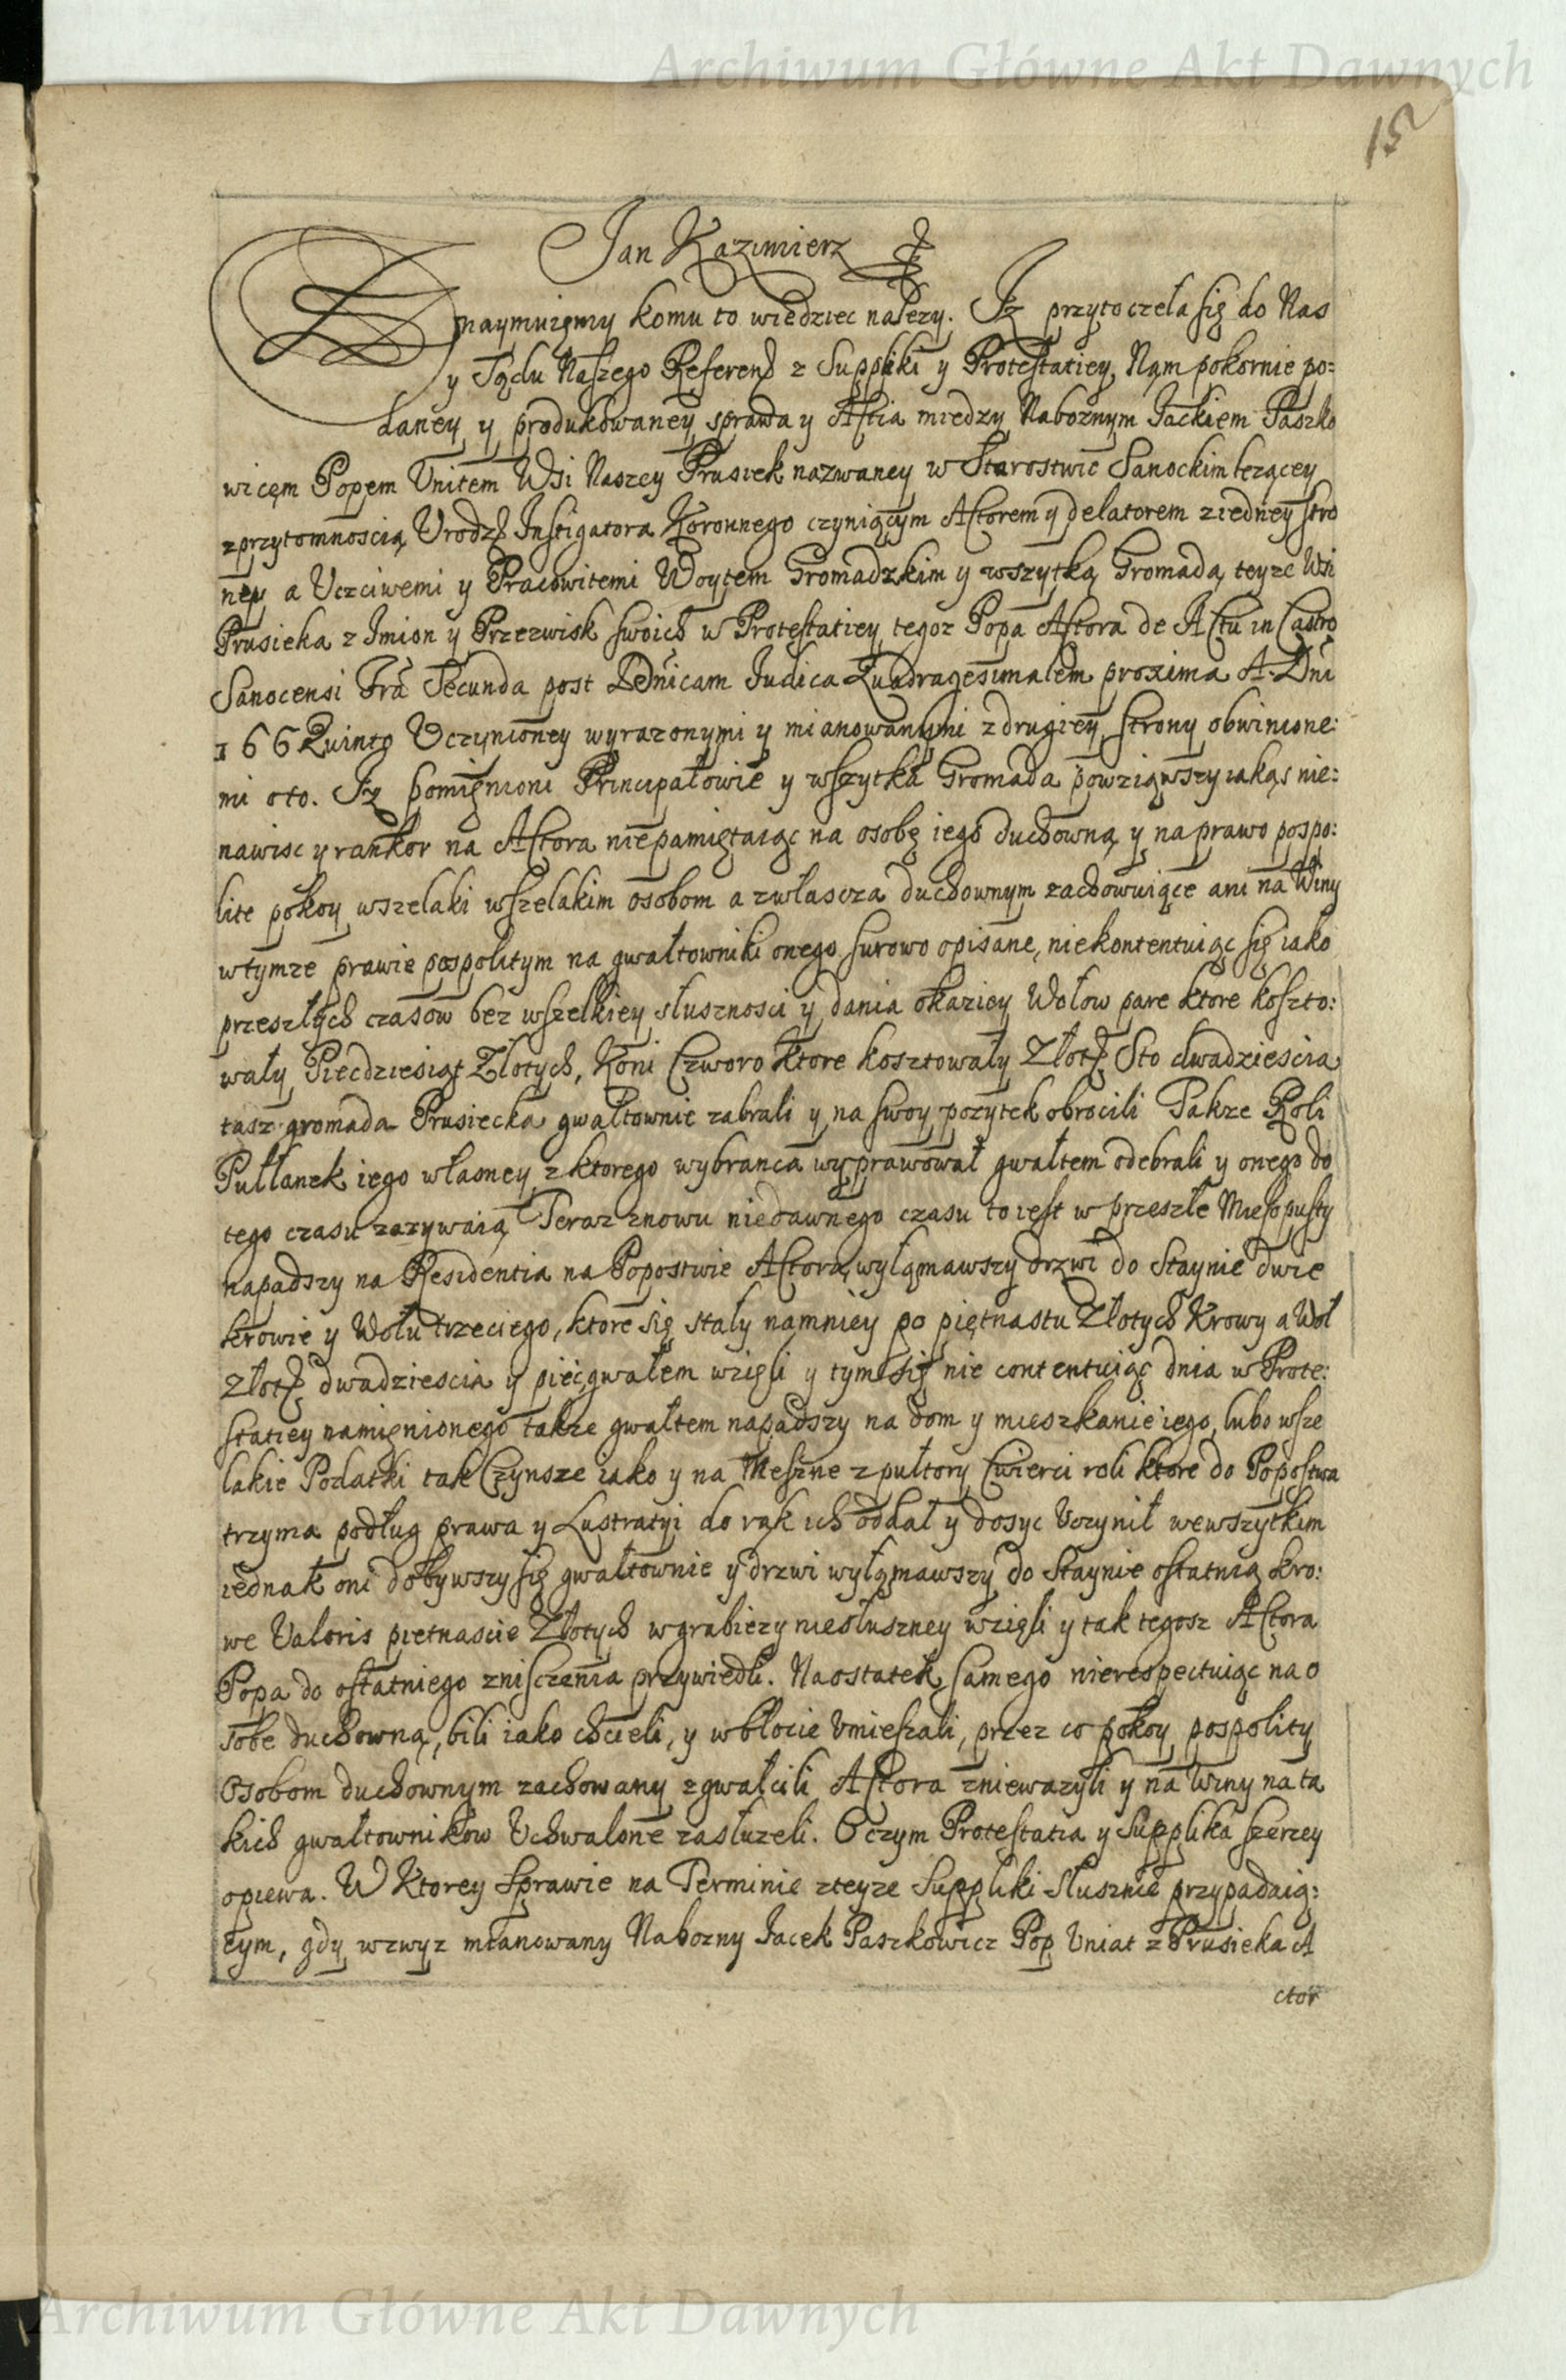 Archiwum Główne Akt Dawnych
15
Jan Kazimierz
Znaymuięmy komu to wiedziec nalezy. Iz przytoczeła się do Nas
y Sądu Naszego Referend z Suppliki y Protestatiey, Nąm pokornie po=
daney y produkowaney sprawa y Actia miedzy Naboznym Jackiem Paszko
wicęm Popem Vnitem Wsi Naszey Prusiek nazwaney w Starostwie Sanockim lezącey
z przytomnoscią Vrodz. Instigatora Koronnego czyniącym Actorem y delatorem z iedney stro
ney a Vczciwemi y Pracowitemi Woytem Gromadzkim y wszytką Gromadą teyze Wsi
Prusieka z Imion y Przezwisk swoich w Protestatiey tegoz Popa Actora de Actu in Castro
Sanocensi Fra Secunda post Dnicam Judica Quadragesimalem proxima A. Dni
166 Quinto Vczynioney wyrazonymi y mianowanymi z drugiey strony obwinione:
mi oto. Iz pomięnioni Principałowie y wszytka Gromada powziąwszy iakąs nie:
nawisc y rankor na Actora niepamiętaiąc na osobę iego duchowną y na prawo pospo:
lite pokoy wszelaki wszelakim osobom a zwłascza duchownym zachowuiące ani na Winy
w tymze prawie pospolitym na gwałtowniki onego surowo opisane, niekontentuiąc się iako
przeszłych czasow bez wszelkiey słusznosci y dania okaziey Wołow pare ktore koszto:
wały Piecdziesiąt Złotych, Koni Czworo ktore kosztowały Złotych Sto dwadziescia
taz gromada Prusiecka gwałtownie zabrali y na swoy pozytek obrocili Takze Roli
Pułłanek iego własney z ktorego wybranca wyprawował gwałtem odebrali y onego do
tego czasu zazywaią Teraz znowu niedawnego czasu to iest w przeszłe Miesopusty
napadszy na Residentia na Popostwie Actora, wyłąmawszy drzwi do Staynie dwie
krowie y Wołu trzeciego, ktore się stały namniey po piętnastu Złotych Krowy a Woł
Złotych dwadziescia y piec, gwałem wzięli y tym się nie contentuiąc dnia w Prote:
statiey namięnionego takze gwałtem napadszy na dom y mieszkanie iego, lubo wsze
lakie Podatki tak Czynsze iako y na Meszne z pułtory Cwierci roli ktore do Popostwa
trzyma podług prawa y Lustratyi do rąk ich oddał y dosyc Vczynił wewszytkim
iednak oni dobywszy się gwałtownie y drzwi wyłąmawszy do Staynie ostatnią kro:
we Valoris pietnascie Złotych w grabiezy niesłuszney wzięli y tak tegosz Actora
Popa do ostatniego znisczenia przywiedli. Naostatek samego nierespectuiąc na o
sobe duchowną, bili iako chcieli, y wbłocie Vmieszali, przez co pokoy pospolity
Osobom duchownym zachowany zgwałcili Actora zniewazyli y na Winy na ta
kich gwałtownikow Vchwalone zasłuzeli. O czym Protestatia y Supplika szerzey
opiewa. W Ktorey Sprawie na Terminie zteyze Suppliki Słusznie przypadaią:
cym, gdy wzwyz mianowany Nabozny Jacek Paszkowicz Pop Vniat z Prusieka A
ctor
Archiwum Główne Akt Dawnych